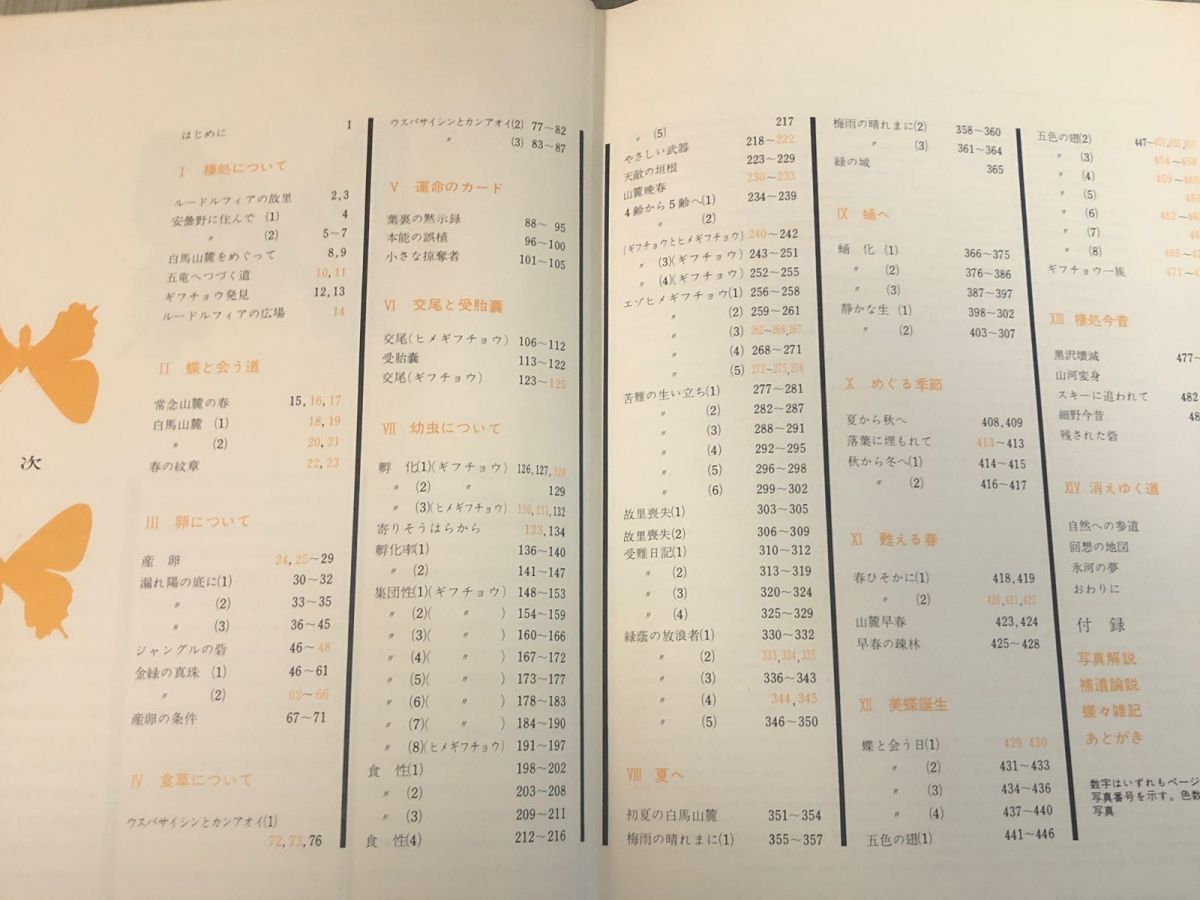 次
はじめに 1
I 棲処について
ルードルフィアの故里 2,3
安曇野に住んで (1) 4
〃 (2) 5~7
白馬山麓をめぐって 8,9
五竜へつづく道 10,11
ギフチョウ発見 12,13
ルードルフィアの広場 14
II 蝶と会う道
常念山麓の春 15,16,17
白馬山麓 (1) 18,19
〃 (2) 20,21
春の紋章 22,23
III 卵について
産 卵 24,25~29
漏れ陽の底に(1) 30~32
〃 (2) 33~35
〃 (3) 36~45
ジャングルの砦 46~48
金緑の真珠 (1) 46~61
〃 (2) 62~66
産卵の条件 67~71
IV 食草について
ウスバサイシンとカンアオイ(1)
72,73,76
ウスバサイシンとカンアオイ(2) 77~82
〃 (3) 83~87
V 運命のカード
葉裏の黙示録 88~95
本能の誤植 96~100
小さな掠奪者 101~105
VI 交尾と受胎嚢
交尾(ヒメギフチョウ) 106~112
受胎嚢 113~122
交尾(ギフチョウ) 123~125
VII 幼虫について
孵 化(1)(ギフチョウ) 126,127,128
〃 (2) 〃 129
〃 (3)(ヒメギフチョウ) 130,131,132
寄りそうはらから 133,134
孵化率(1) 136~140
〃 (2) 141~147
集団性(1)(ギフチョウ) 148~153
〃 (2)( 〃 ) 154~159
〃 (3)( 〃 ) 160~166
〃 (4)( 〃 ) 167~172
〃 (5)( 〃 ) 173~177
〃 (6)( 〃 ) 178~183
〃 (7)( 〃 ) 184~190
〃 (8)(ヒメギフチョウ) 191~197
食 性(1) 198~202
〃 (2) 203~208
〃 (3) 209~211
食 性(4) 212~216
〃 (5) 217
やさしい武器 218~222
天敵の垣根 223~229
山麓晩春 230~233
4齢から5齢へ(1) 234~239
〃 (2)
(ギフチョウとヒメギフチョウ) 240~242
〃 (3)(ギフチョウ) 243~251
〃 (4)(ギフチョウ) 252~255
エゾヒメギフチョウ(1) 256~258
〃 (2) 259~261
〃 (3) 262~266,267
〃 (4) 268~271
〃 (5) 272~275,276
苦難の生い立ち(1) 277~281
〃 (2) 282~287
〃 (3) 288~291
〃 (4) 292~295
〃 (5) 296~298
〃 (6) 299~302
故里喪失(1) 303~305
故里喪失(2) 306~309
受難日記(1) 310~312
〃 (2) 313~319
〃 (3) 320~324
〃 (4) 325~329
緑蔭の放浪者(1) 330~332
〃 (2) 333,334,335
〃 (3) 336~343
〃 (4) 344,345
〃 (5) 346~350
VIII 夏へ
初夏の白馬山麓 351~354
梅雨の晴れまに(1) 355~357
梅雨の晴れまに(2) 358~360
〃 (3) 361~364
緑の城 365
IX 蛹へ
蛹 化 (1) 366~375
〃 (2) 376~386
〃 (3) 387~397
静かな生 (1) 398~302
〃 (2) 403~307
X めぐる季節
夏から秋へ 408,409
落葉に埋もれて 413~413
秋から冬へ(1) 414~415
〃 (2) 416~417
XI 甦える春
春ひそかに(1) 418,419
〃 (2) 420,421,422
山麓早春 423,424
早春の疎林 425~428
XII 美蝶誕生
蝶と会う日(1) 429 430
〃 (2) 431~433
〃 (3) 434~436
〃 (4) 437~440
五色の翅(1) 441~446
五色の翅(2) 447~451,452,453
〃 (3) 454~458
〃 (4) 459~460
〃 (5) 461
〃 (6) 462~463
〃 (7) 464
〃 (8) 465~47
ギフチョウ一族 471~
XIII 棲処今昔
黒沢壊滅 477~
山河変身
スキーに追われて 482
細野今昔 484
残された砦
XIV 消えゆく道
自然への参道
回想の地図
氷河の夢
おわりに
付 録
写真解説
補遺論説
蝶々雑記
あとがき
数字はいずれもページ
写真番号を示す。色数
写真